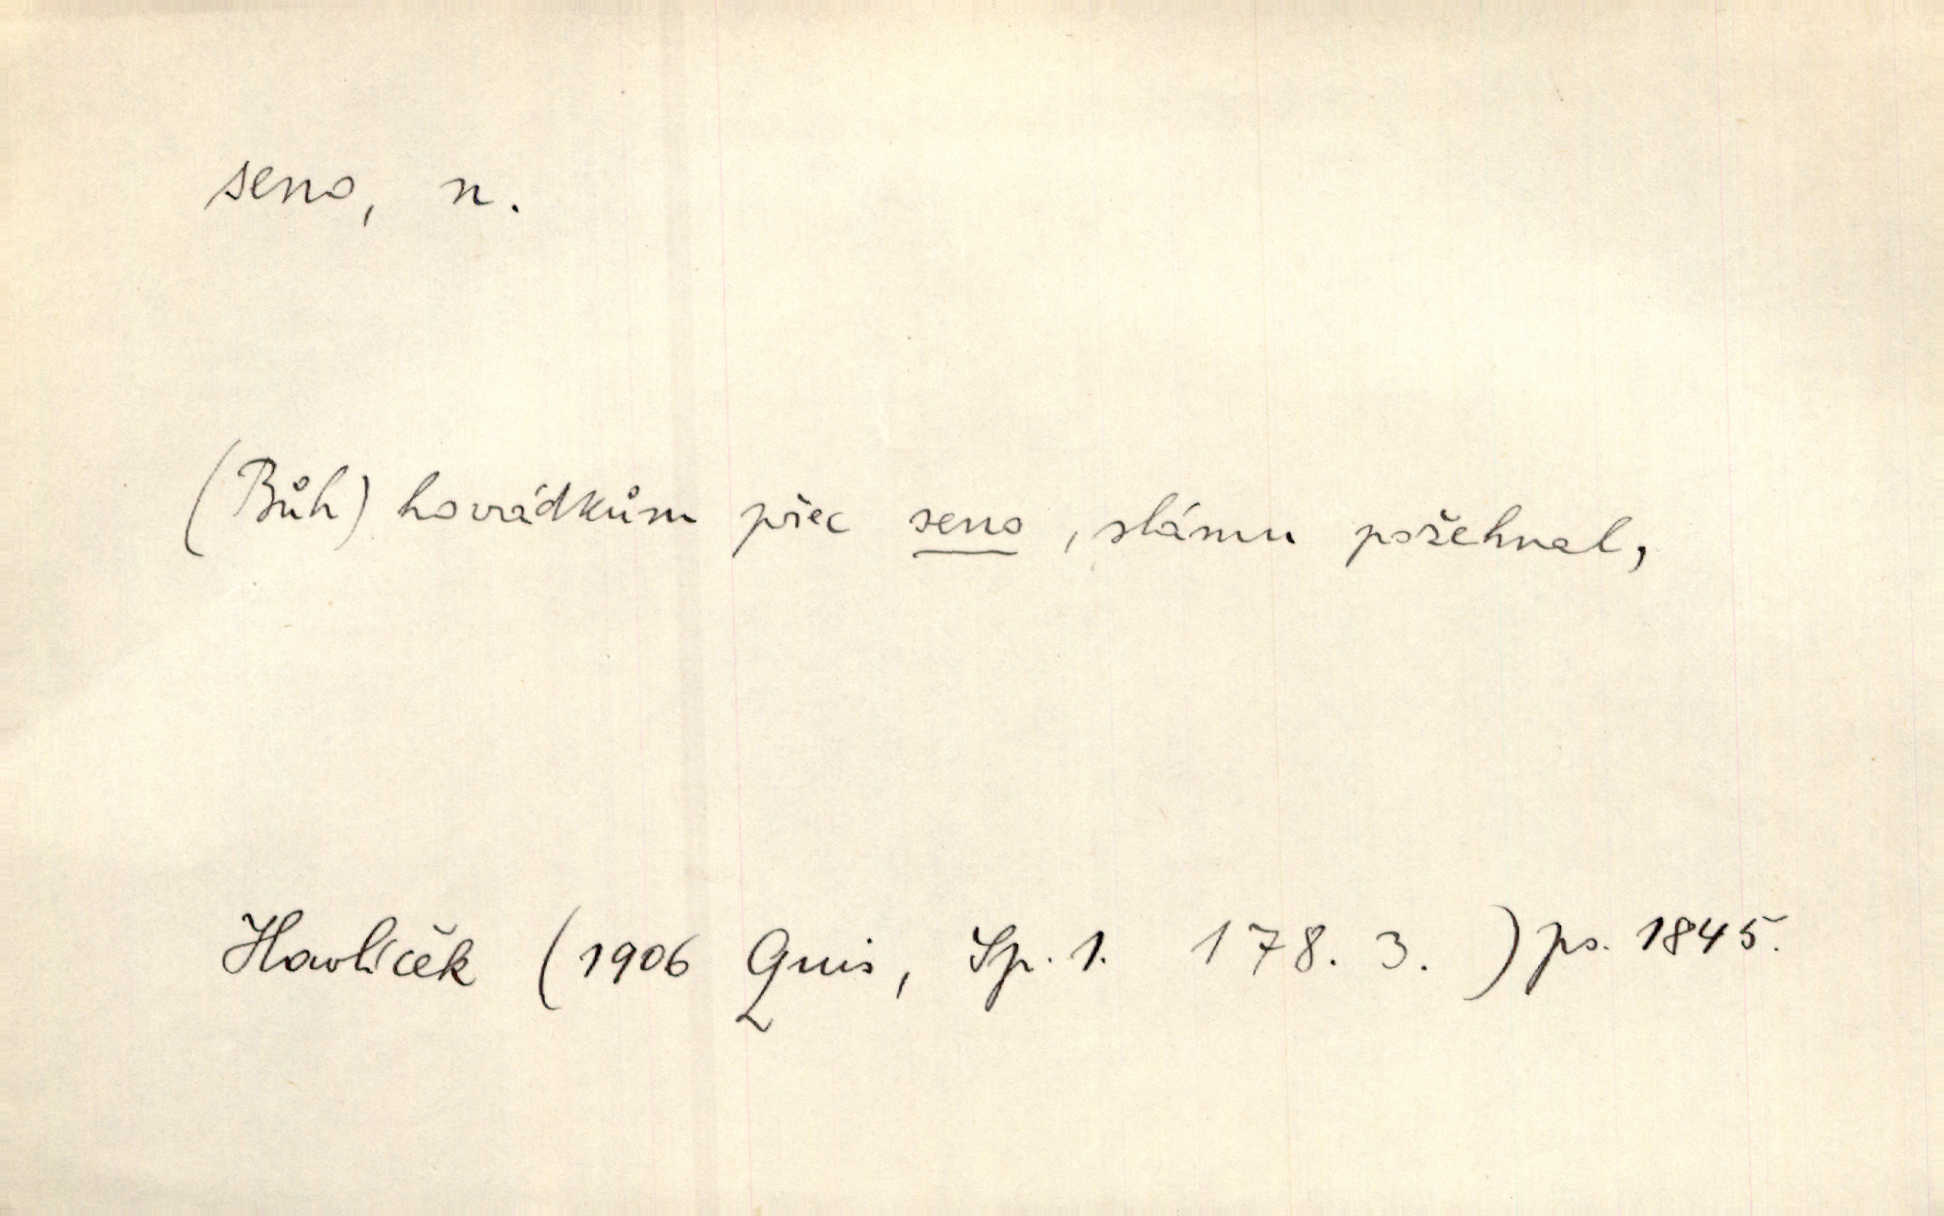 seno, n.
(Bůh) hovádkům přec seno, slámu požehnal,
Havlíček (1906 Quis, Sp. 1. 178. 3. ) ps. 1845.